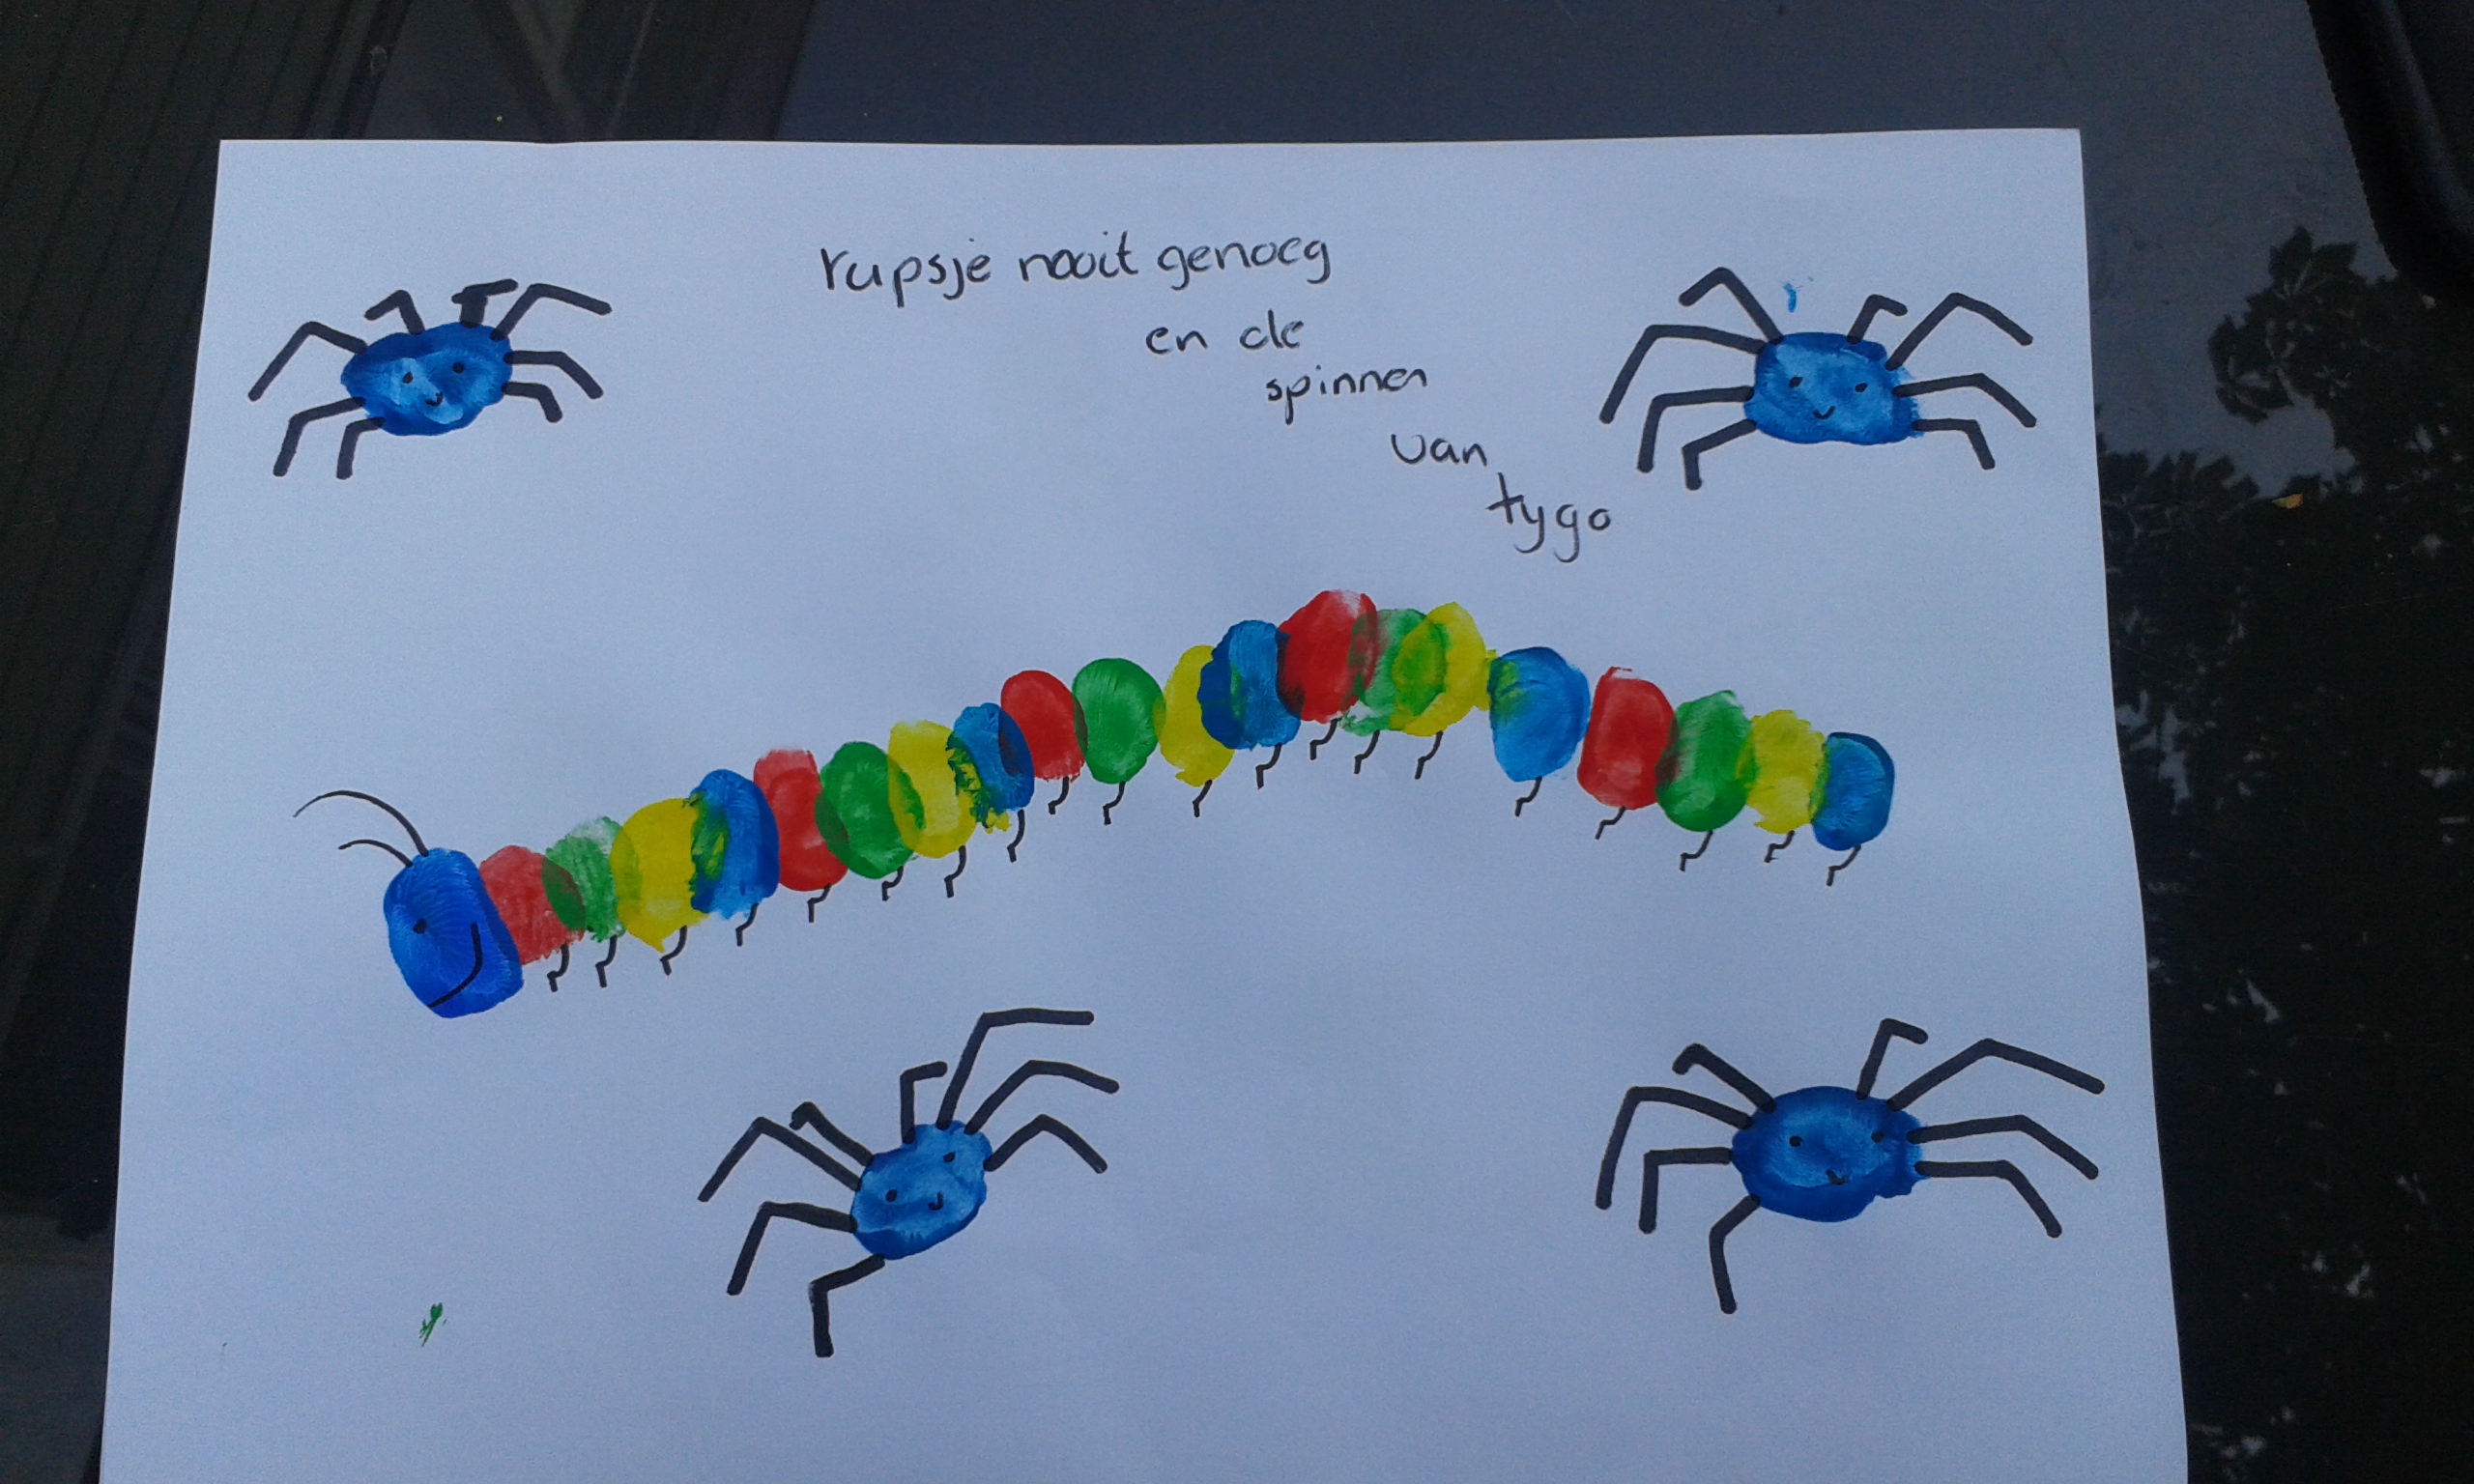 rupsje nooit genoeg
en de
spinnen
van
tygo